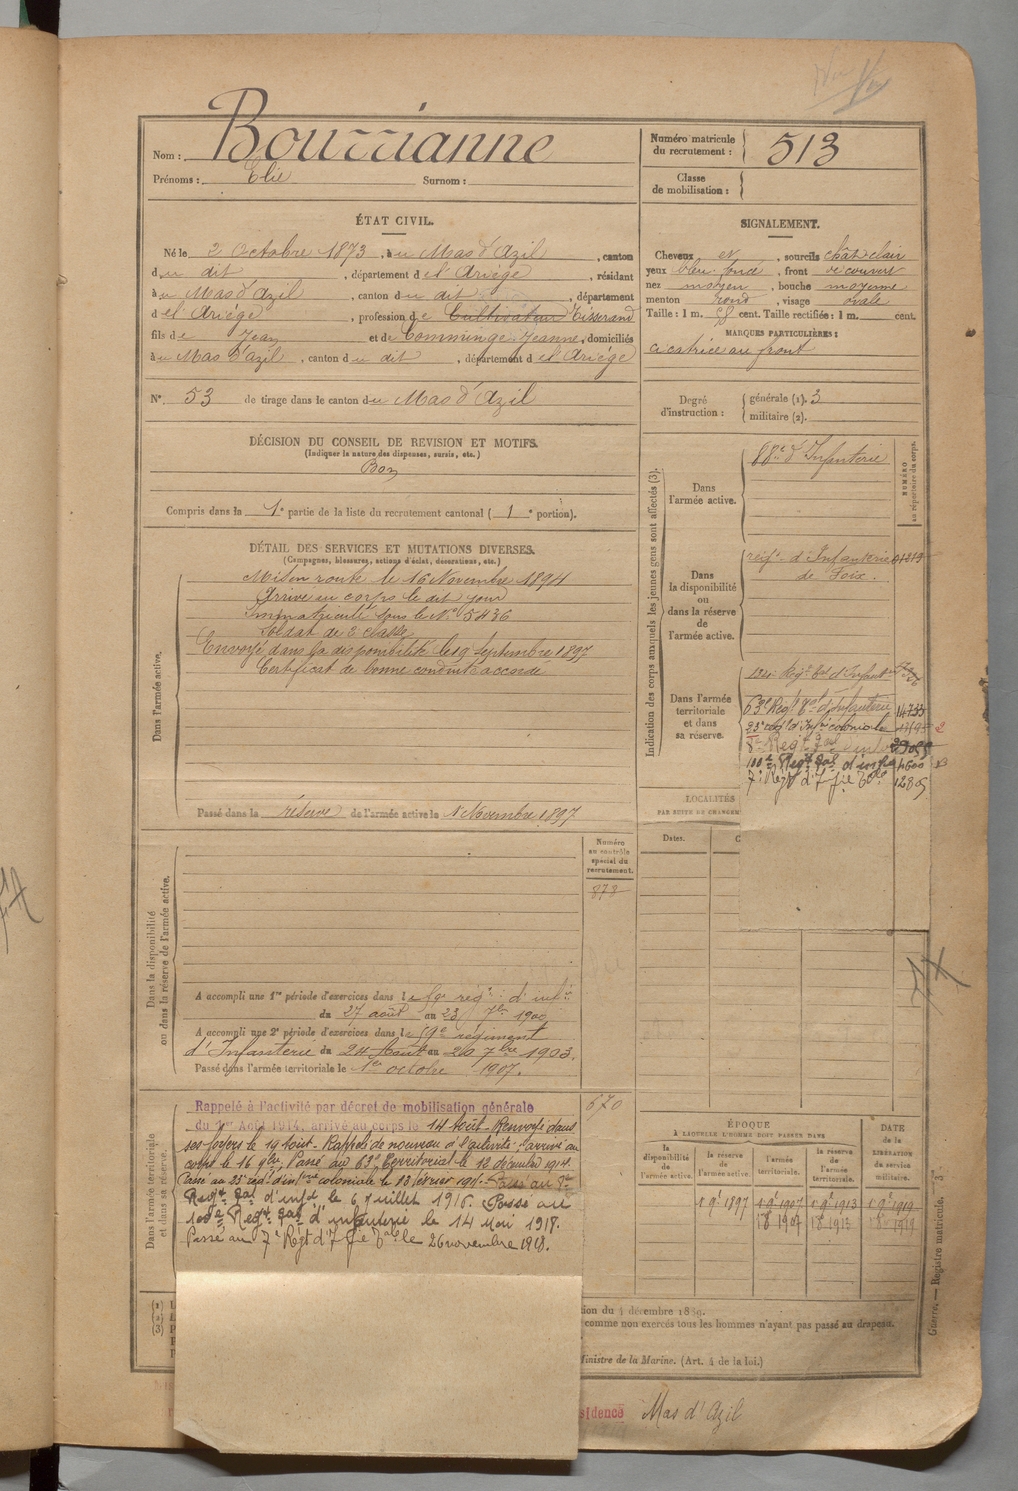 Nom : Bourrianne
Prénoms : Elie Surnom :
Numéro matricule du recrutement : 513
Classe de mobilisation :
ÉTAT CIVIL.
Né le 2 Octobre 1873, à u Mas d'Azil, canton
du dit, département de l'Ariège, résidant
à u Mas d'Azil, canton du dit, département
de l'Ariège, profession de Cultivateur Tisserand
fils de Jean et de Comminge Jeanne, domiciliés
à u Mas d'Azil, canton du dit, département de l'Ariège
N°. 53 de tirage dans le canton du Mas d'Azil
SIGNALEMENT.
Cheveux et, sourcils chât clair
yeux bleu foncé, front découvert
nez moyen, bouche moyenne
menton rond, visage ovale
Taille : 1 m. cent. Taille rectifiée : 1 m. cent.
MARQUES PARTICULIÈRES :
cicatrice au front
Degré d'instruction : générale (1). 3
militaire (2).
DÉCISION DU CONSEIL DE REVISION ET MOTIFS.
(Indiquer la nature des dispenses, sursis, etc.)
Bon
Compris dans la 1e partie de la liste du recrutement cantonal ( 1e portion).
DÉTAIL DES SERVICES ET MUTATIONS DIVERSES.
(Campagnes, blessures, actions d'éclat, décorations, etc.)
Dans l'armée active.
Mis en route le 16 Novembre 1894
Arrivé au corps le dit jour
Immatriculé sous le N° 5436
Soldat de 2e classe
Envoyé dans la disponibilité le 19 Septembre 1897
Certificat de bonne conduite accordé
Passé dans la réserve de l'armée active le 1er Novembre 1897
Indication des corps auxquels les jeunes gens sont affectés (3).
NUMÉRO au répertoire du corps.
Dans l'armée active.
88e d'Infanterie
Dans la disponibilité ou dans la réserve de l'armée active.
regt. d'Infanterie
de Foix.
Dans l'armée territoriale et dans sa réserve.
63e Regt Tal d'Infanterie 14733
23e regt d'Infie coloniale
100e Regt Tal d'infie
7e Regt d'Infie Colle
LOCALITÉS
Dates.
Dans la disponibilité ou dans la réserve de l'armée active.
Numéro au contrôle spécial du recrutement.
878
A accompli une 1re période d'exercices dans le régt d'infie
du 27 août au 23 7bre 1900
A accompli une 2e période d'exercices dans le régiment
d'Infanterie du 24 Août au 20 7bre 1903.
Passé dans l'armée territoriale le 1er octobre 1907.
Dans l'armée territoriale et dans sa réserve.
670
Rappelé à l'activité par décret de mobilisation générale
du 1er Août 1914, arrivé au corps le 14 Août. Renvoyé dans
ses foyers le 19 Août. Rappelé de nouveau à l'activité ; arrivé au
corps le 16 9bre. Passé au 63e Territorial le 12 décembre 1914.
Passé au 23e régt d'infrie coloniale le 13 février 191 Passé au
Regt Tal d'infie le 6 Juillet 1916. Passé au
100e Regt Tal d'infanterie le 14 Mai 1918.
Passé au 7e Régt d'Infie Cale le 26 novembre 1918.
ÉPOQUE
À LAQUELLE L'HOMME DOIT PASSER DANS
DATE de la LIBÉRATION du service militaire.
la disponibilité de l'armée active.
la réserve de l'armée active.
l'armée territoriale.
la réserve de l'armée territoriale.
1 9bre 1897 1 9bre 1907 1 9bre 1913 1 9bre 1919
1 8 1907 1 8 1913 1 8 1919
Guerre. — Registre matricule. 3e
ion du 4 décembre 1889.
comme non exercés tous les hommes n'ayant pas passé au drapeau.
Ministre de la Marine. (Art. 4 de la loi.)
sidence Mas d'Azil